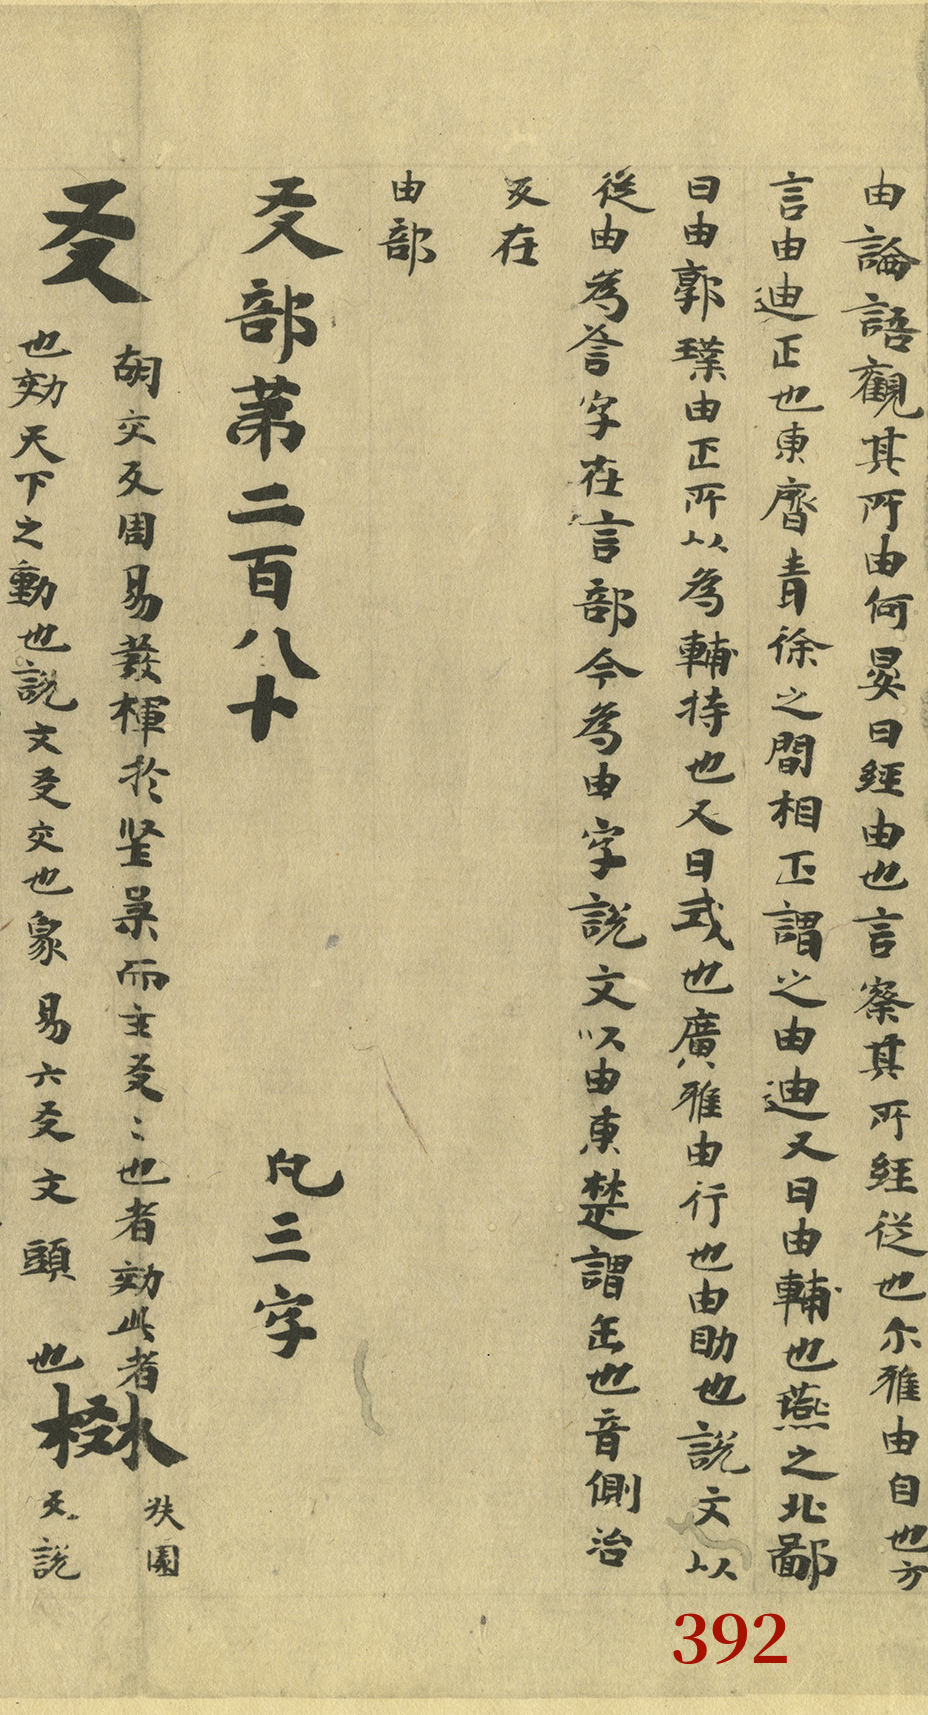 由論語觀其所由何晏曰經由也言察其所經從也尓雅由自也方
言由迪正也東齊青徐之間相正謂之由迪又曰由輔也燕之北鄙
曰由郭璞由正所以為輔持也又曰式也廣雅由行也由助也說文以
從由為䚻字在言部今為由字說文以由東楚謂缶也音側治
反在
由部
爻部苐二百八十
凡三字
爻
胡交反周易發揮於堅柔而生爻〻也者効此者
也効天下之動也說文爻交也象易六爻文頭也
棥
扶園
反說
392